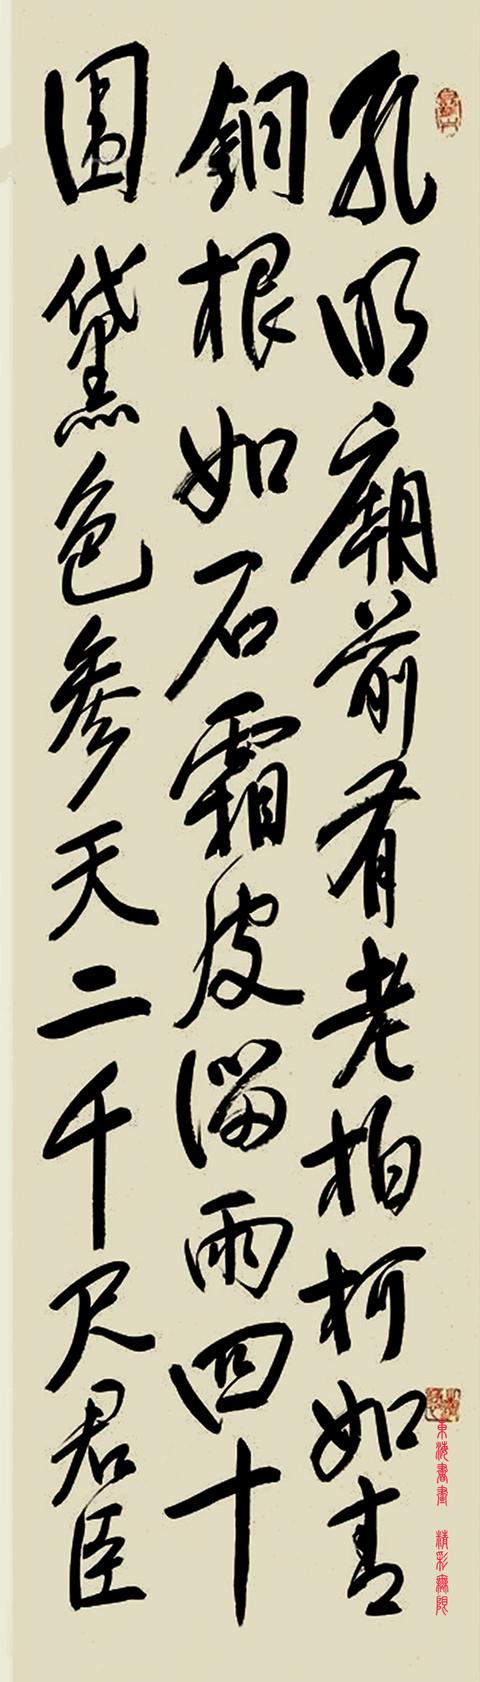 孔明廟前有老柏柯如青
銅根如石霜皮溜雨四十
圍黛色參天二千尺君臣
東海書畫 精彩無限